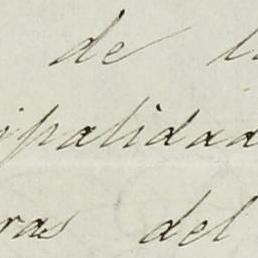 de l
ipalidad
ras del